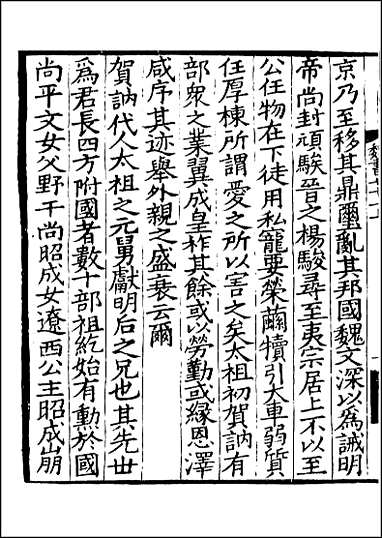 京乃至移其鼎璽亂其邦國魏文深以為誡明
帝尚封頑駿晉之楊駿尋至夷宗居上不以至
公任物在下徒用私寵要榮繭犢引大車弱質
任厚棟所謂愛之所以害之矣太祖初賀訥有
部衆之業翼成皇祚其餘或以勞勤或緣恩澤
咸序其迹舉外親之盛衰云爾
賀訥代人太祖之元舅獻明后之兄也其先世
爲君長四方附國者數十部祖紇始有勳於國
尚平文女父野干尚昭成女遼西公主昭成崩